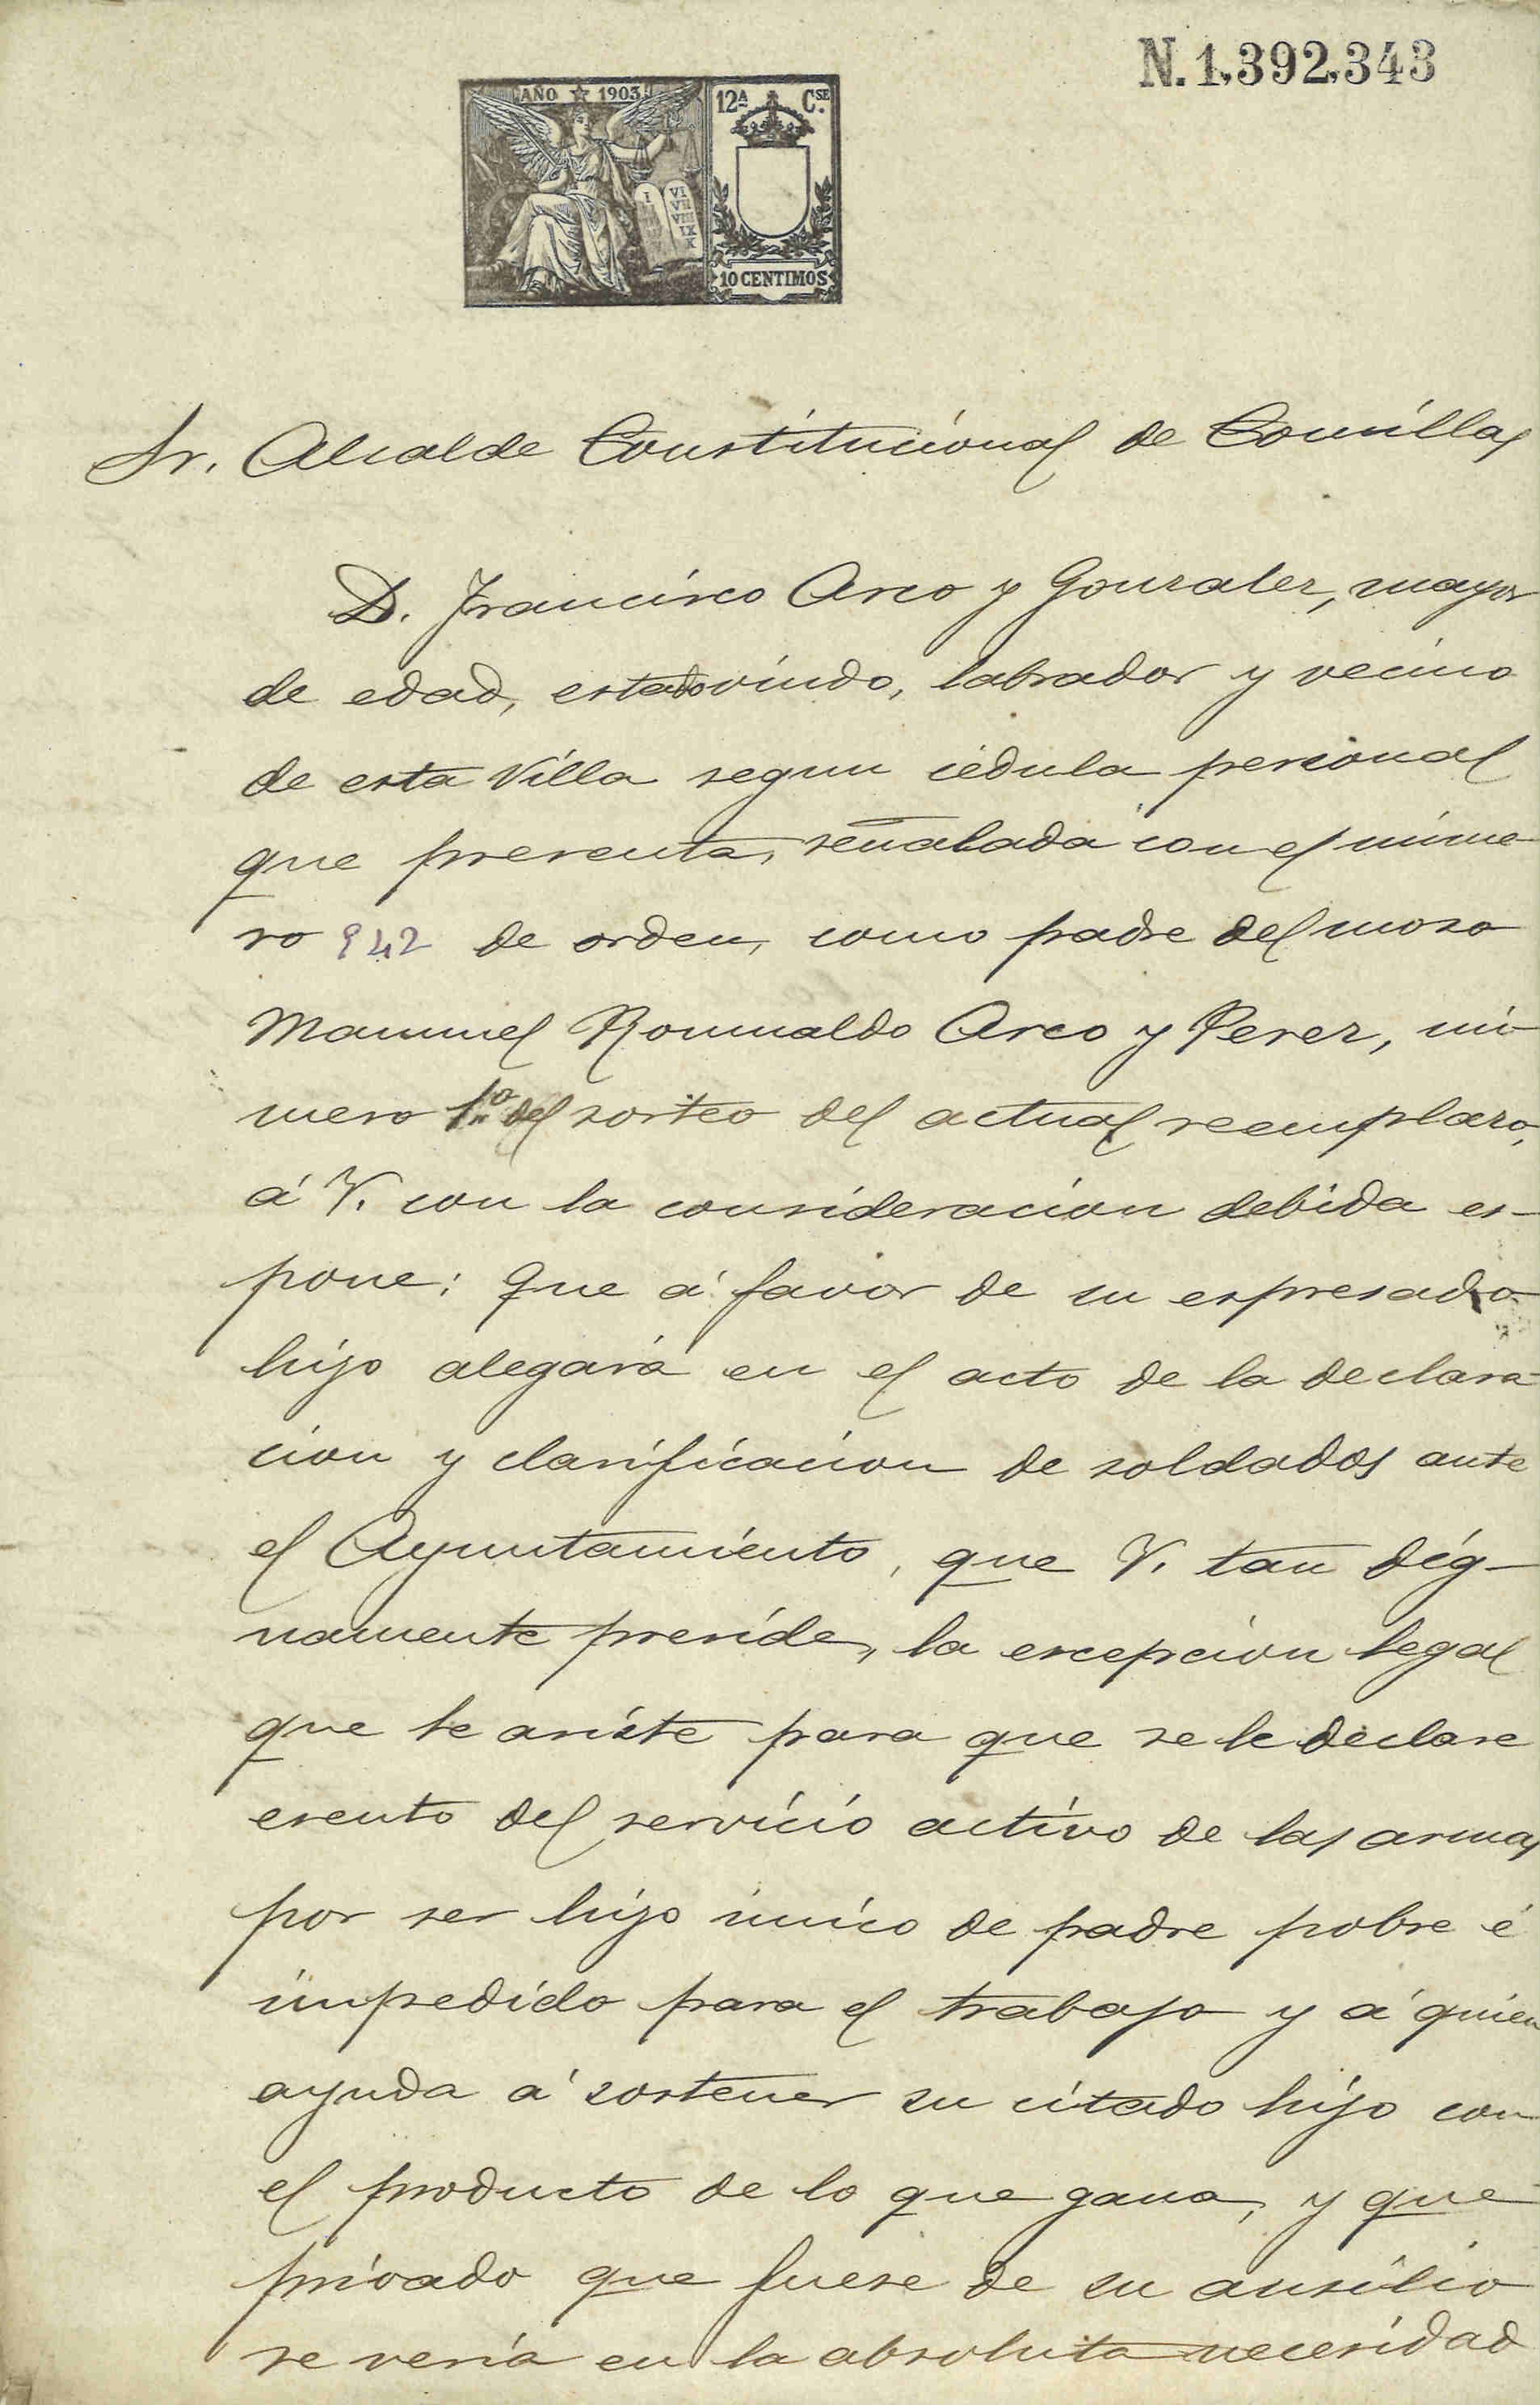 N. 1,392,343
AÑO ☆ 1903
12ª Cˢᴱ
I VI
VII
VIII
IX
X
10 CENTIMOS
Sr. Alcalde Constitucional de Comillas
D. Francisco Arco y Gonzalez, mayor
de edad, estado viudo, labrador y vecino
de esta Villa segun cédula personal
que presenta, señalada con el núme-
ro 942 de orden, como padre del mozo
Manuel Romualdo Arco y Perez, nú-
mero 1º del sorteo del actual reemplazo,
á V. con la consideracion debida es-
pone: Que á favor de su espresado
hijo alegará en el acto de la declara-
cion y clasificacion de soldados ante
el Ayuntamiento, que V. tan dig-
namente preside, la escepcion legal
que le asiste para que se le declare
esento del servicio activo de las armas
por ser hijo único de padre pobre é
impedido para el trabajo y á quien
ayuda á sostener su citado hijo con
el producto de lo que gana, y que
privado que fuese de su ausilio
se vería en la absoluta necesidad